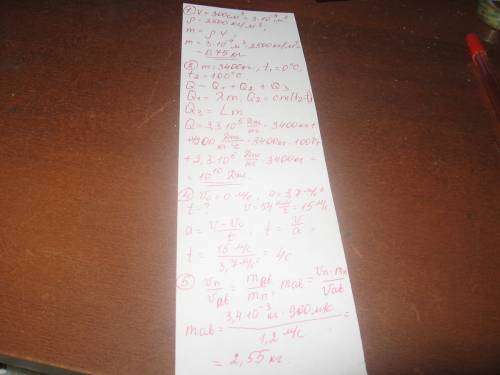 ① V = 300 см³ = 3·10⁻⁴ м³
ρ = 2500 кг/м³,
m = ρV,
m = 3·10⁻⁴ м³ · 2500 кг/м³
= 0,75 кг.
③ m = 3400 кг, t₁ = 0°C,
t₂ = 100°C
Q = Q₁ + Q₂ + Q₃
Q₁ = λm; Q₂ = cm(t₂-t₁)
Q₃ = Lm
Q = 3,3·10⁵ Дж/кг · 3400 кг +
+4200 Дж/кг·°C · 3400кг · 100°C +
+ 2,3·10⁶ Дж/кг · 3400 кг =
= 10¹⁰ Дж.
④ V₀ = 0 м/с, a = 3,7 м/с²
t = ? V = 54 км/ч = 15 м/с.
a = V - V₀ / t ; t = V / a =
t = 15 м/с / 3,7 м/с² = 4с
⑤ Vп / Vав = mав / mп, mав = Vп·mп / Vав
mав = 3,4·10⁻³ кг · 900 м/с / 1,2 м/с =
= 2,55 кг.